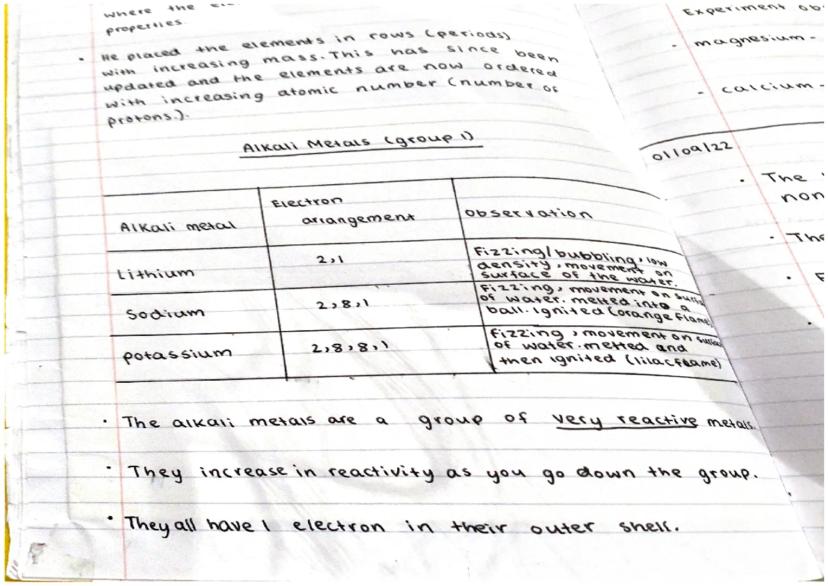 where the
properties.
• He placed the elements in rows (periods)
with increasing mass. This has since been
updated and the elements are now ordered
with increasing atomic number (number of
protons.).
Alkali Metals (group 1)
Alkali metal
Electron
arrangement
observation
Lithium
2,1
Fizzing/bubbling, low
density, movement on
surface of the water.
Sodium
2,8,1
Fizzing, movement on
of water. melted into a
ball. ignited (orange flame)
potassium
2,8,8,1
Fizzing, movement on
of water. melted and
then ignited (lilac flame)
• The alkali metals are a group of very reactive metals.
• They increase in reactivity as you go down the group.
• They all have 1 electron in their outer shell.
Experiment
- magnesium -
- calcium -
01/09/22
• The
non
• The